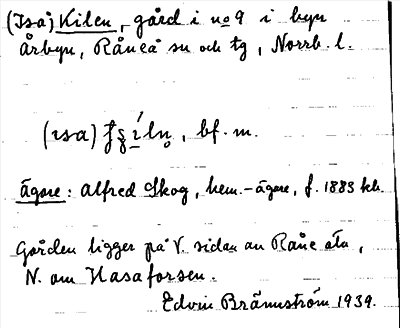 (Isa) Kilen, gård i no 9 i byn
Årbyn, Råneå sn och tg, Norrb. l.
bf. m.
Ägare: Alfred Skog, hem.-ägare, f. 1883 kb.
Gården ligger på V. sidan av Råne älv,
N. om Hasaforsen.
Edvin Brännström 1939.